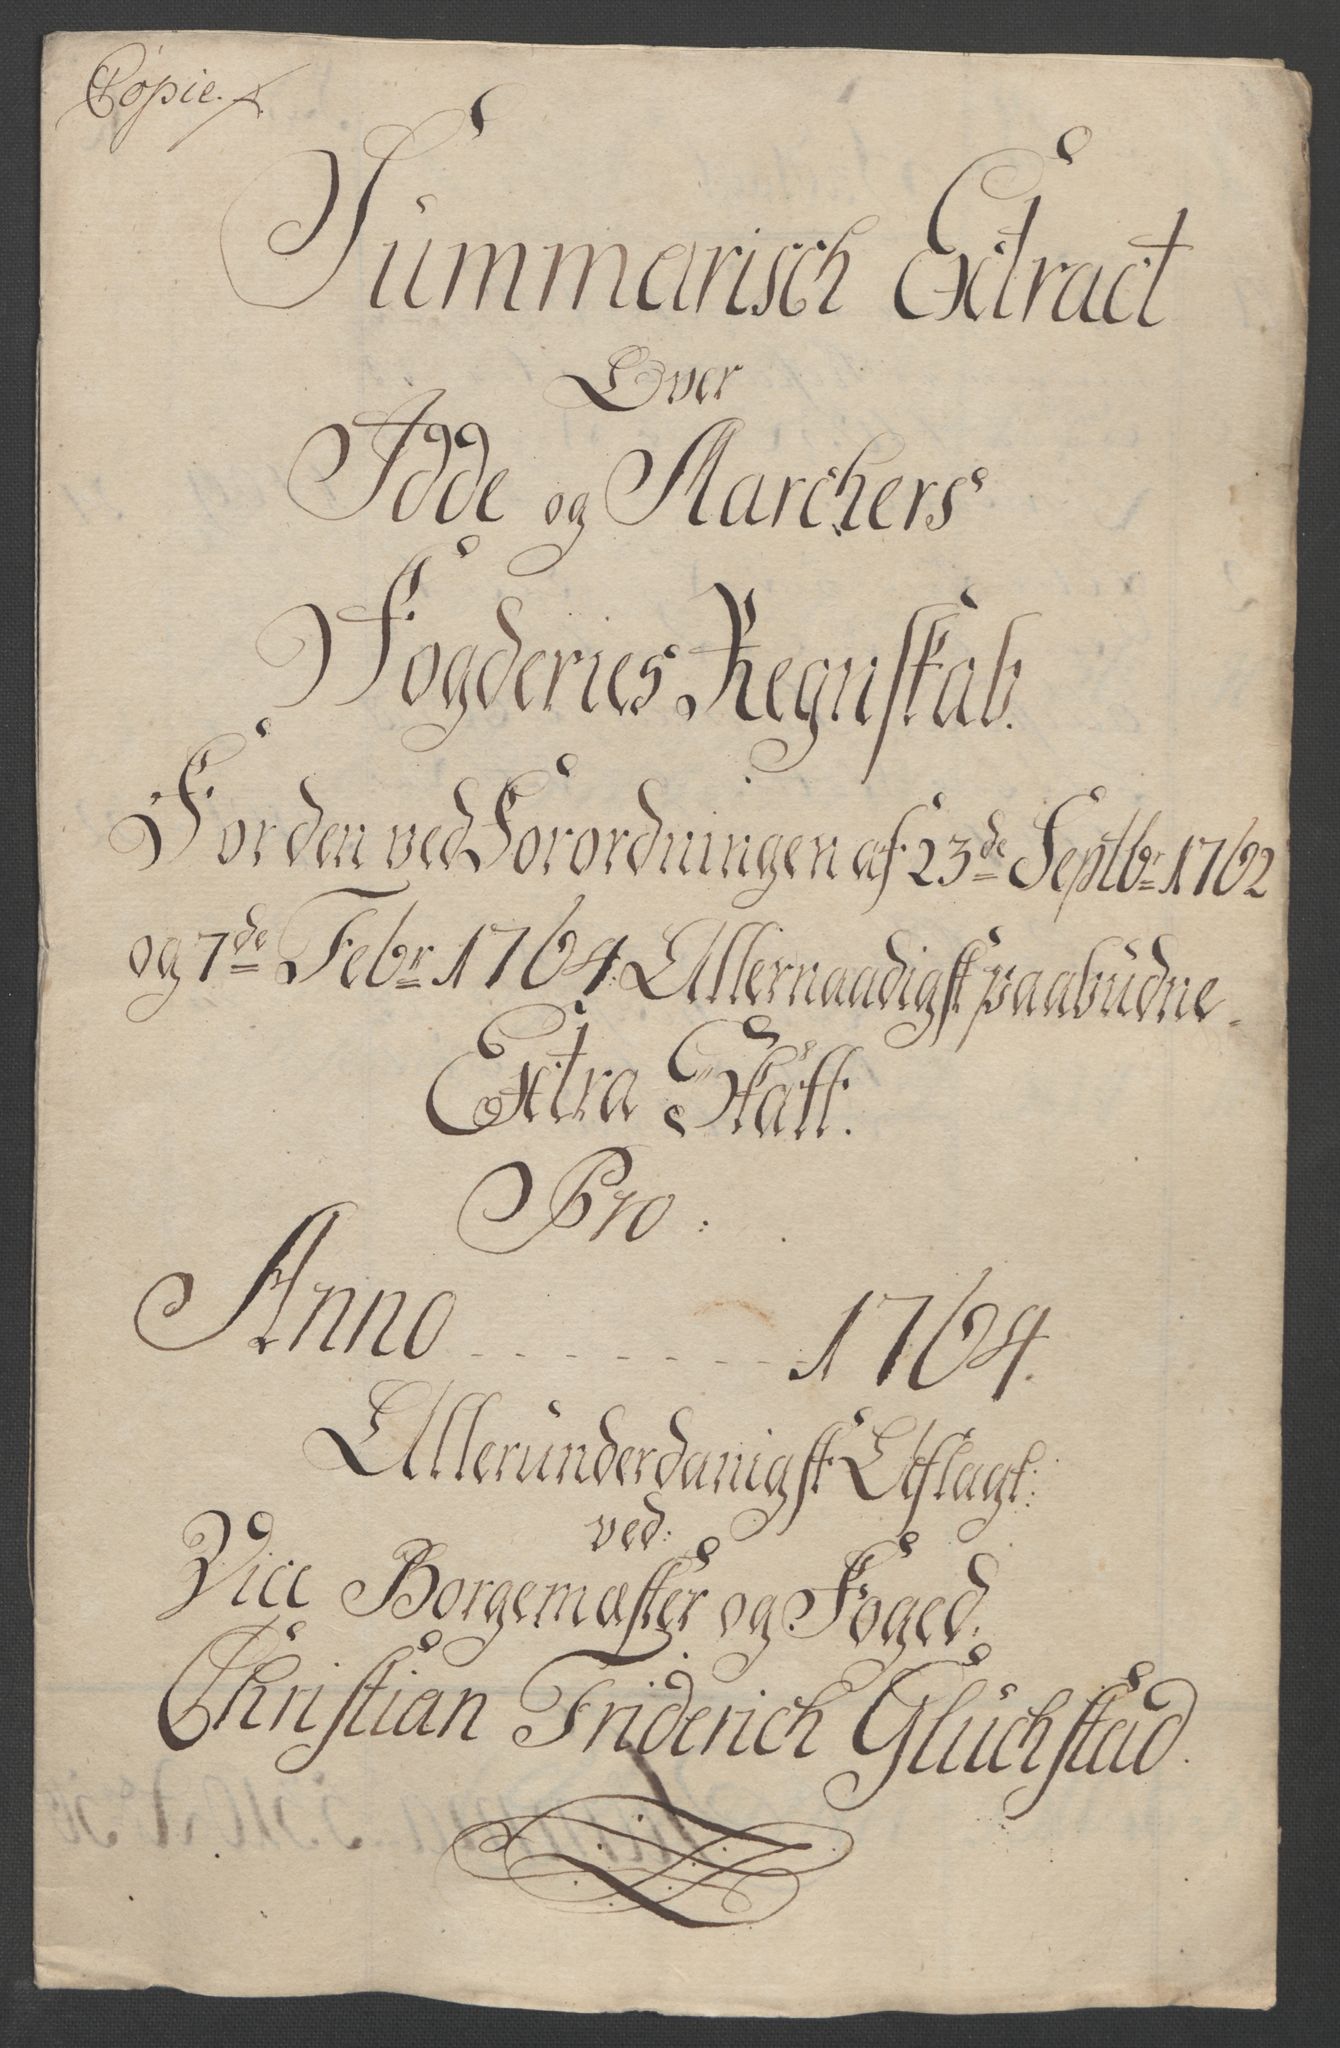 Copie.
Summarisch Extract
Over
Idde og Marchers
Fogderies Regnskab.
For den ved Forordningen af 23de Septbr 1762
og 7de Febr 1764 Allernaadigst paabüdne
Extra Skatt.
Pro:
Anno - - - - - - - - 1764.
Alleründerdanigst Aflagt:
ved:
Vice Borgemæster og Foged:
Christian Friderich Glüchstad.